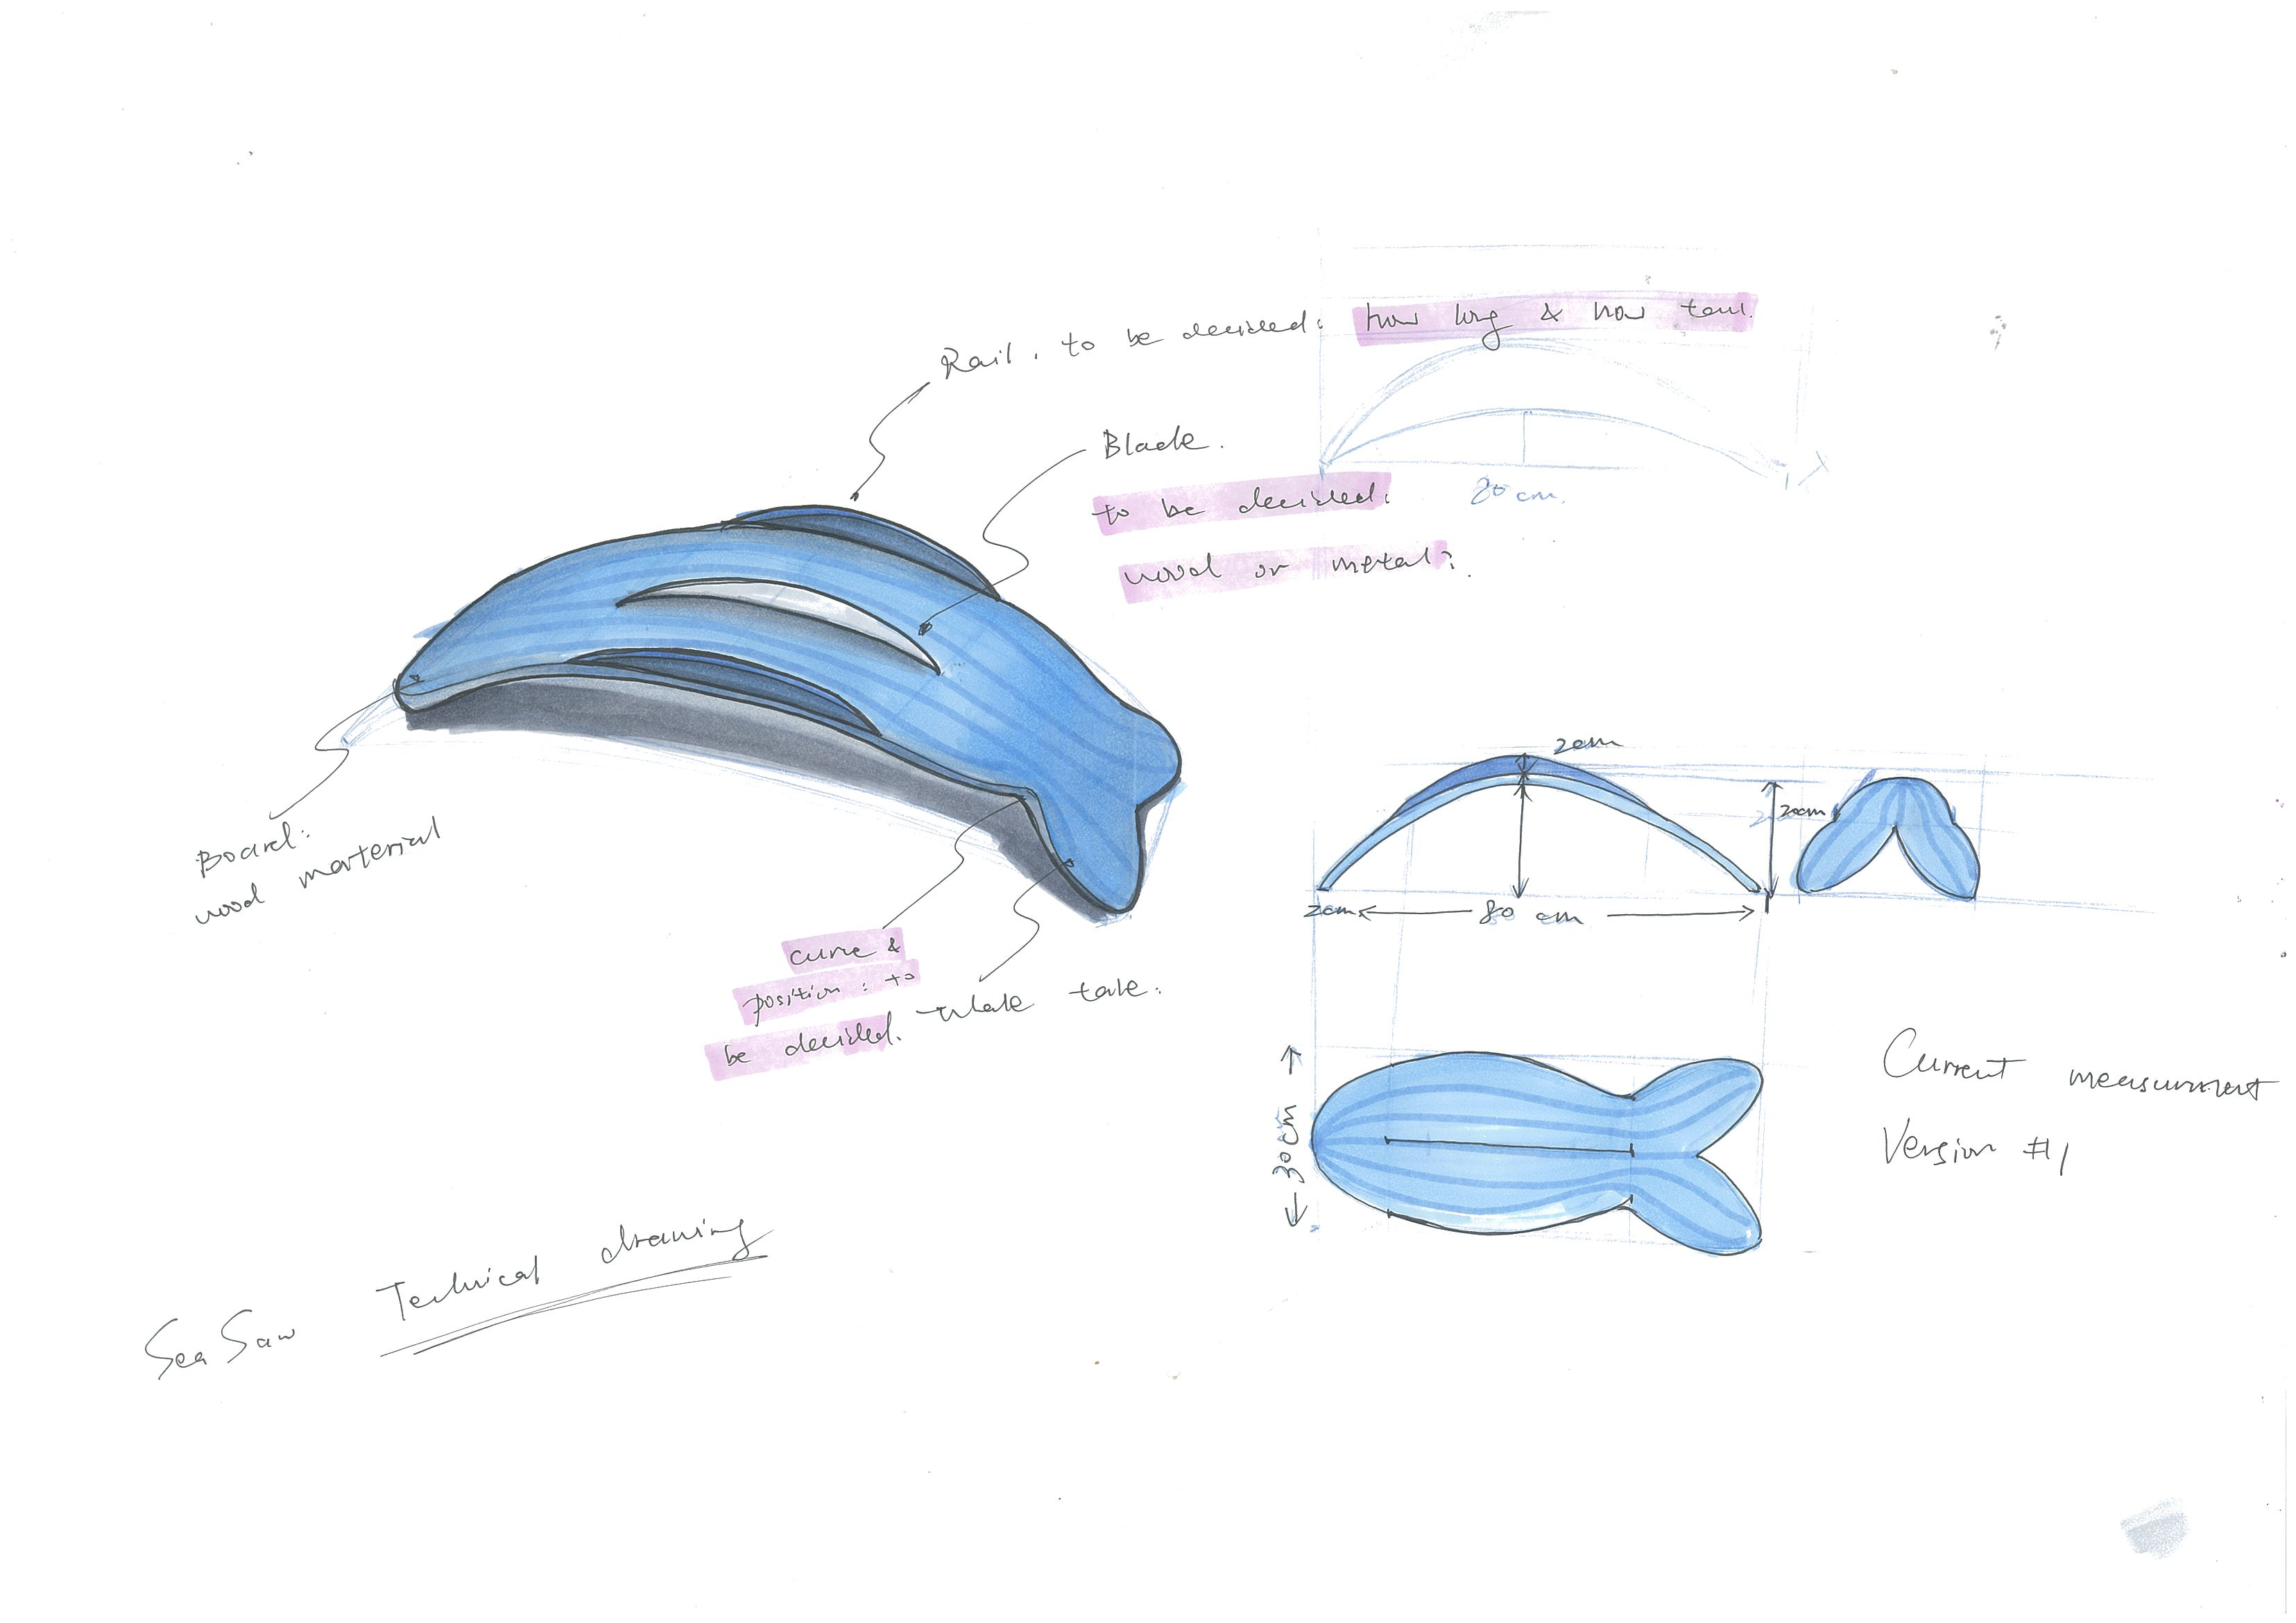 Rail. to be decided: how long & how tall.
Blade.
to be decided:
wood or metal?
80 cm.
Board:
wood marterial
curve &
position: to
be decided.
Whale tale.
2cm
20cm
2cm
80 cm
30cm
Current measurment
Version #1
Sea Saw Technical drawing